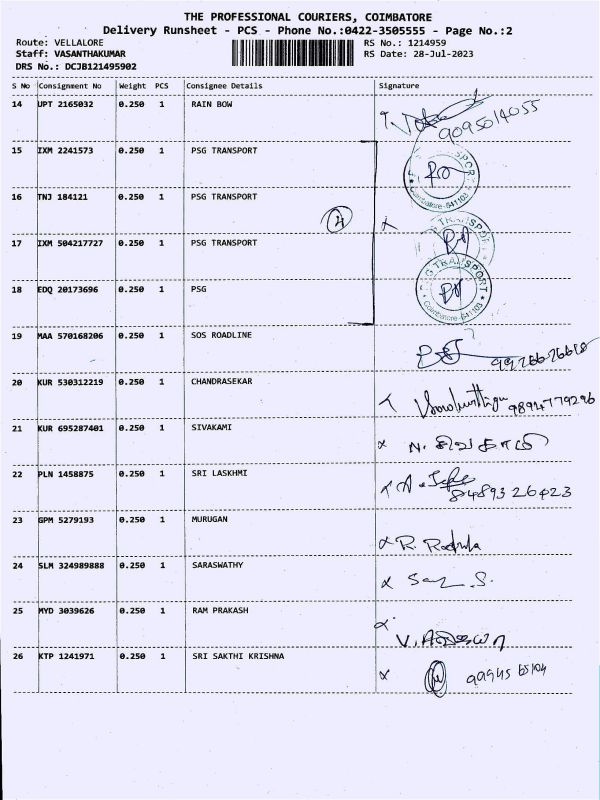 THE PROFESSIONAL COURIERS, COIMBATORE
Delivery Runsheet - PCS - Phone No.:0422-3505555 - Page No.:2
Route: VELLALORE RS No.: 1214959
Staff: VASANTHAKUMAR RS Date: 28-Jul-2023
DRS No.: DCJB121495902
S No Consignment No Weight PCS Consignee Details Signature
14 UPT 2165032 0.250 1 RAIN BOW 9095014055
15 IXM 2241573 0.250 1 PSG TRANSPORT
16 TNJ 184121 0.250 1 PSG TRANSPORT
4
17 IXM 504217727 0.250 1 PSG TRANSPORT
18 EDQ 20173696 0.250 1 PSG
PSG TRANSPORT
19 MAA 570168206 0.250 1 SOS ROADLINE
20 KUR 530312219 0.250 1 CHANDRASEKAR 9894779296
21 KUR 695287401 0.250 1 SIVAKAMI N. சிவகாமி
22 PLN 1458875 0.250 1 SRI LASKHMI 8489326423
23 GPM 5279193 0.250 1 MURUGAN R. Radhula
24 SLM 324989888 0.250 1 SARASWATHY
25 MYD 3039626 0.250 1 RAM PRAKASH
26 KTP 1241971 0.250 1 SRI SAKTHI KRISHNA 99945 65104